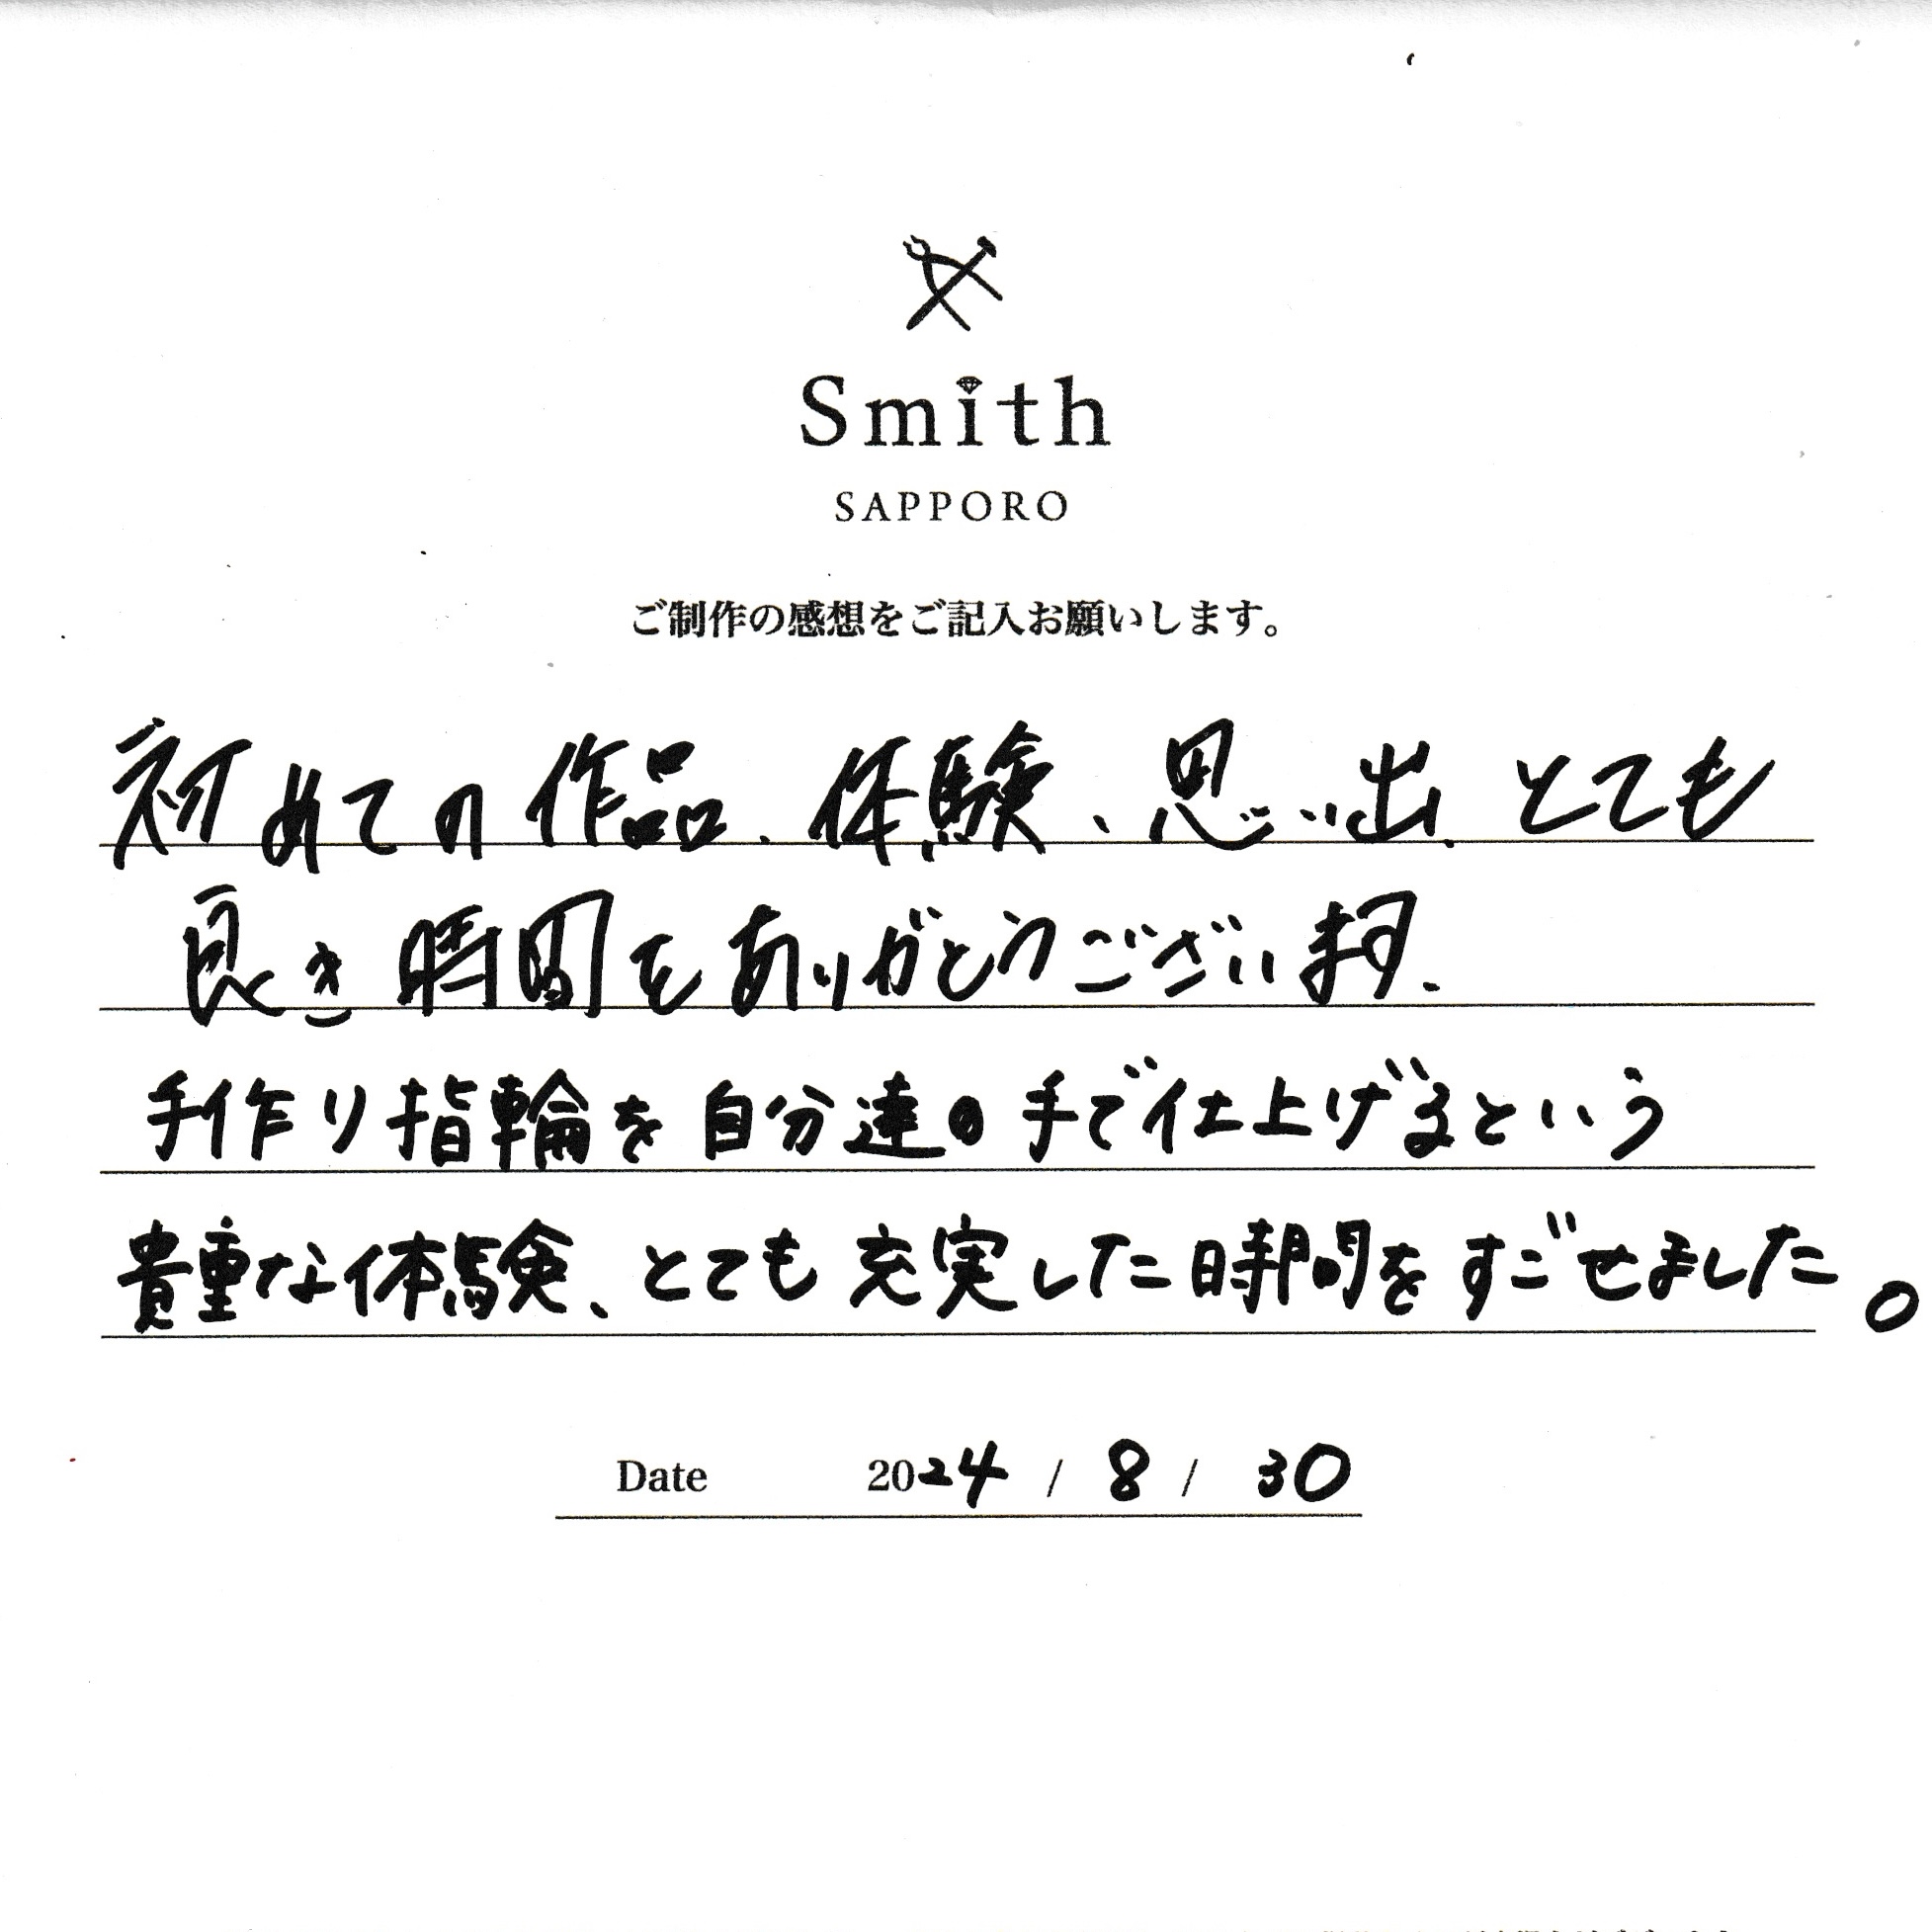 Smith
SAPPORO
ご制作の感想をご記入お願いします。
初めての作品、体験、思い出、とても
良き時間をありがとうございます。
手作り指輪を自分達の手で仕上げるという
貴重な体験、とても充実した時間をすごせました。
Date 2024 / 8 / 30